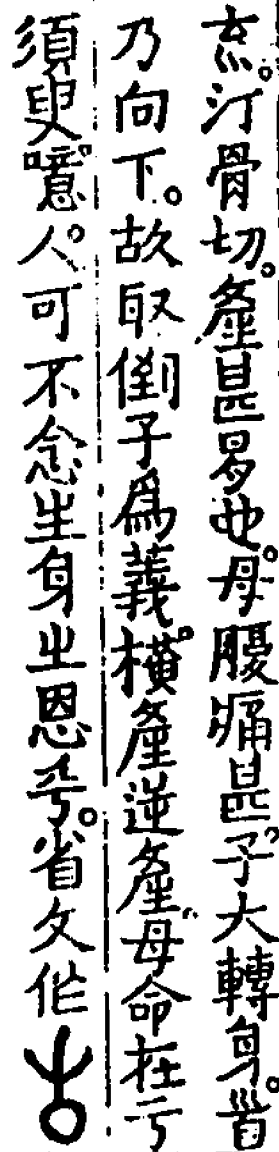 㐬。汀骨切。產甚易也。母腹痛甚。子大轉身。首
乃向下。故取倒子爲義。橫產逆產。母命在于
須臾。噫。人可不念生身之恩乎。省文作